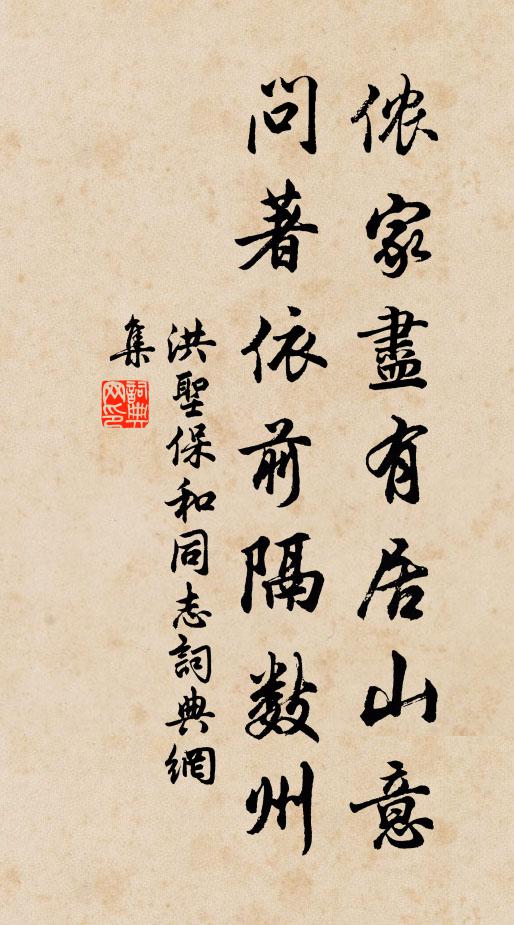 侬家盡有居山意
問著依前隔數州
洪聖保和同志詞典網
集
詞典網印